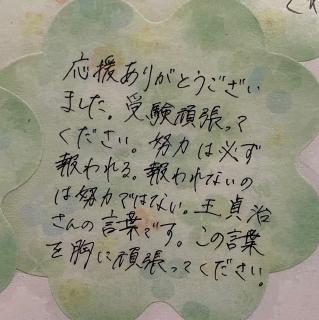 応援ありがとうござい
ました。受験頑張って
ください。努力は必ず
報われる。報われないの
は努力ではない。王貞治
さんの言葉です。この言葉
を胸に頑張ってください。